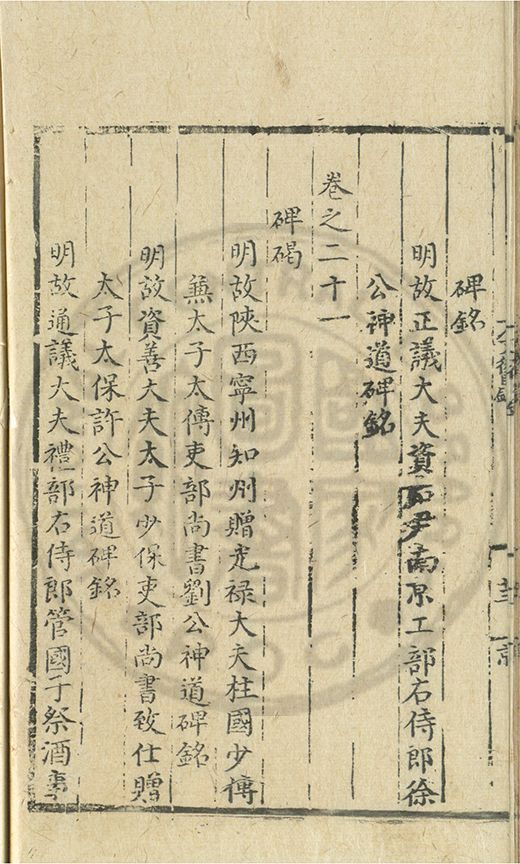 碑銘
明故正議大夫資治尹南京工部右侍郎徐
公神道碑銘
卷之二十一
碑碣
明故陝西寧州知州贈光禄大夫柱國少傅
兼太子太傅吏部尚書劉公神道碑銘
明故資善大夫太子少保吏部尚書致仕贈
太子太保許公神道碑銘
明故通議大夫禮部右侍郎管國子祭酒事